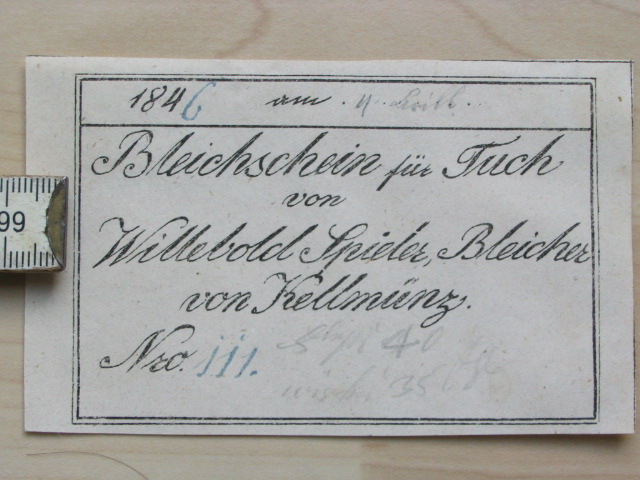 1846 am 4
Bleichschein für Tuch
von
Willebold Spieler, Bleicher
von Kellmünz.
Nro. 111.
40
35
99